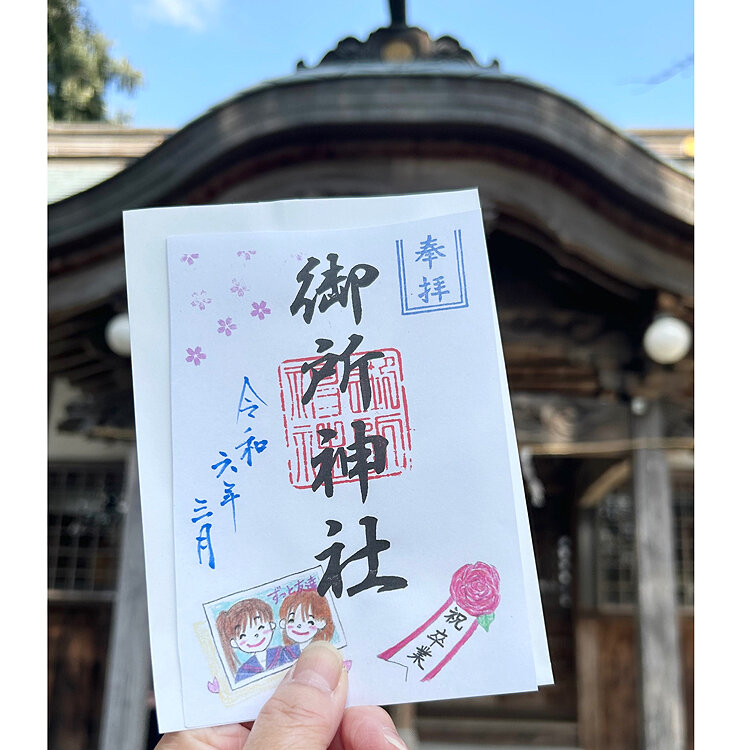 奉拝
御所神社
令和
六年
三月
ずっと友達
祝卒業